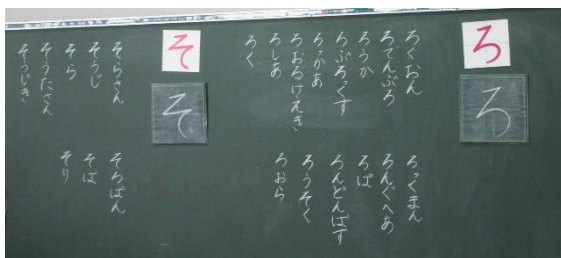 ろ
ろ
ろくおん
ろてんぶろ
ろうか
ろぶろっくす
ろっかあ
ろおるけえき
ろしあ
ろく
ろっくまん
ろんぐへあ
ろば
ろんどんばす
ろうそく
ろおら
そ
そ
そらさん
そうじ
そら
そうたさん
そうじき
そろばん
そば
そり